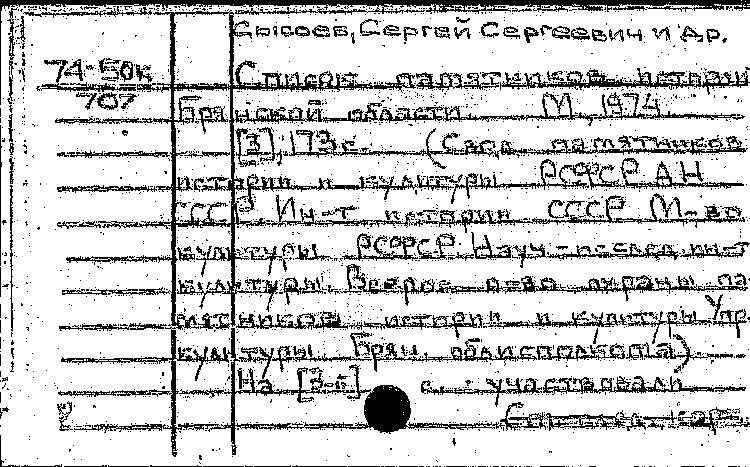 Сысоев, Сергей Сергеевич и др.
74-50к
707
Список памятников истории
Брянской области. М., 1974.
[3], 173 с. (Свод памятников
истории и культуры РСФСР АН
СССР. Ин-т истории СССР М-во
культуры РСФСР. Науч-исслед. ин-т
культуры. Всерос. о-во охраны па-
мятников истории и культуры Упр.
культуры Брян. облисполкома)
На [3-й] с. : участвовали